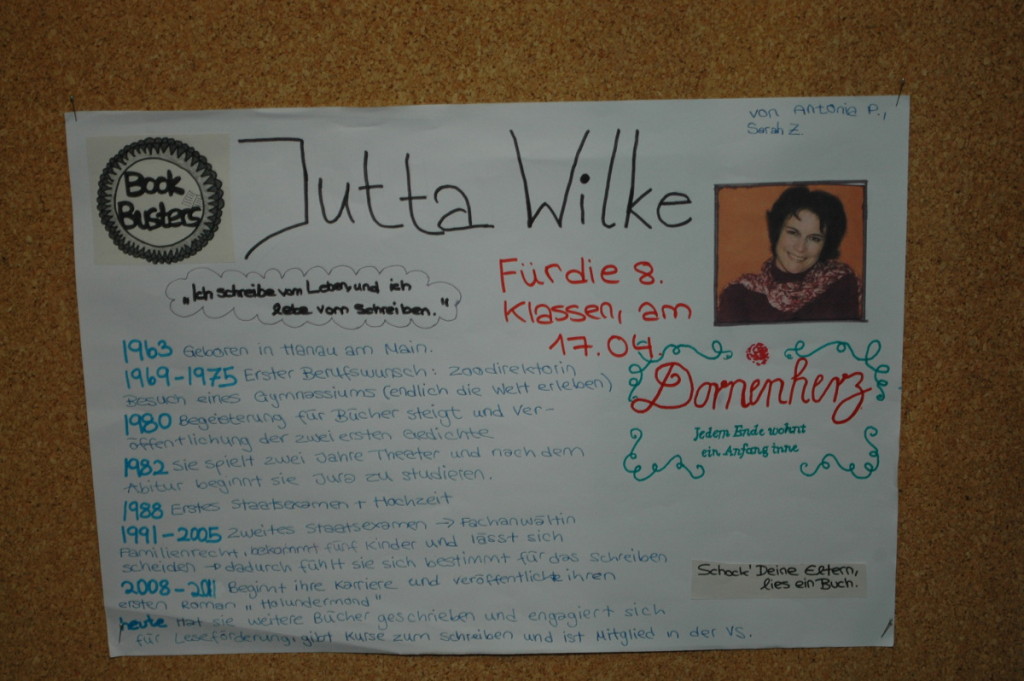 von Antonia P.,
Sarah Z.
Book
Busters
Jutta Wilke
„Ich schreibe vom Leben, und ich
lebe vom Schreiben."
Für die 8.
Klassen, am
17.04.
1963 Geboren in Hanau am Main.
1969-1975 Erster Berufswunsch: Zoodirektorin
Besuch eines Gymnassiums (endlich die Welt erleben)
1980 Begeisterung für Bücher steigt und Ver-
öffentlichung der zwei ersten Gedichte
1982 Sie spielt zwei Jahre Theater und nach dem
Abitur beginnt sie Jura zu studieren.
1988 Erstes Staatsexamen + Hochzeit
1991-2005 Zweites Staatsexamen → Fachanwältin
Familienrecht, bekommt fünf Kinder und lässt sich
scheiden → dadurch fühlt sie sich bestimmt für das schreiben
2008-2011 Beginnt ihre Karriere und veröffentlicht ihren
ersten Roman „Holundermond"
heute Hat sie weitere Bücher geschrieben und engagiert sich
für Leseförderung, gibt Kurse zum Schreiben und ist Mitglied in der VS.
Dornenherz
Jedem Ende wohnt
ein Anfang inne
Schock' Deine Eltern,
lies ein Buch.